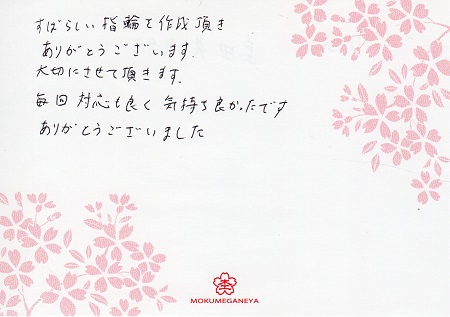 すばらしい指輪を作成頂き
ありがとうございます.
大切にさせて頂きます.
毎回対応も良く気持ち良かったです
ありがとうございました
MOKUMEGANEYA